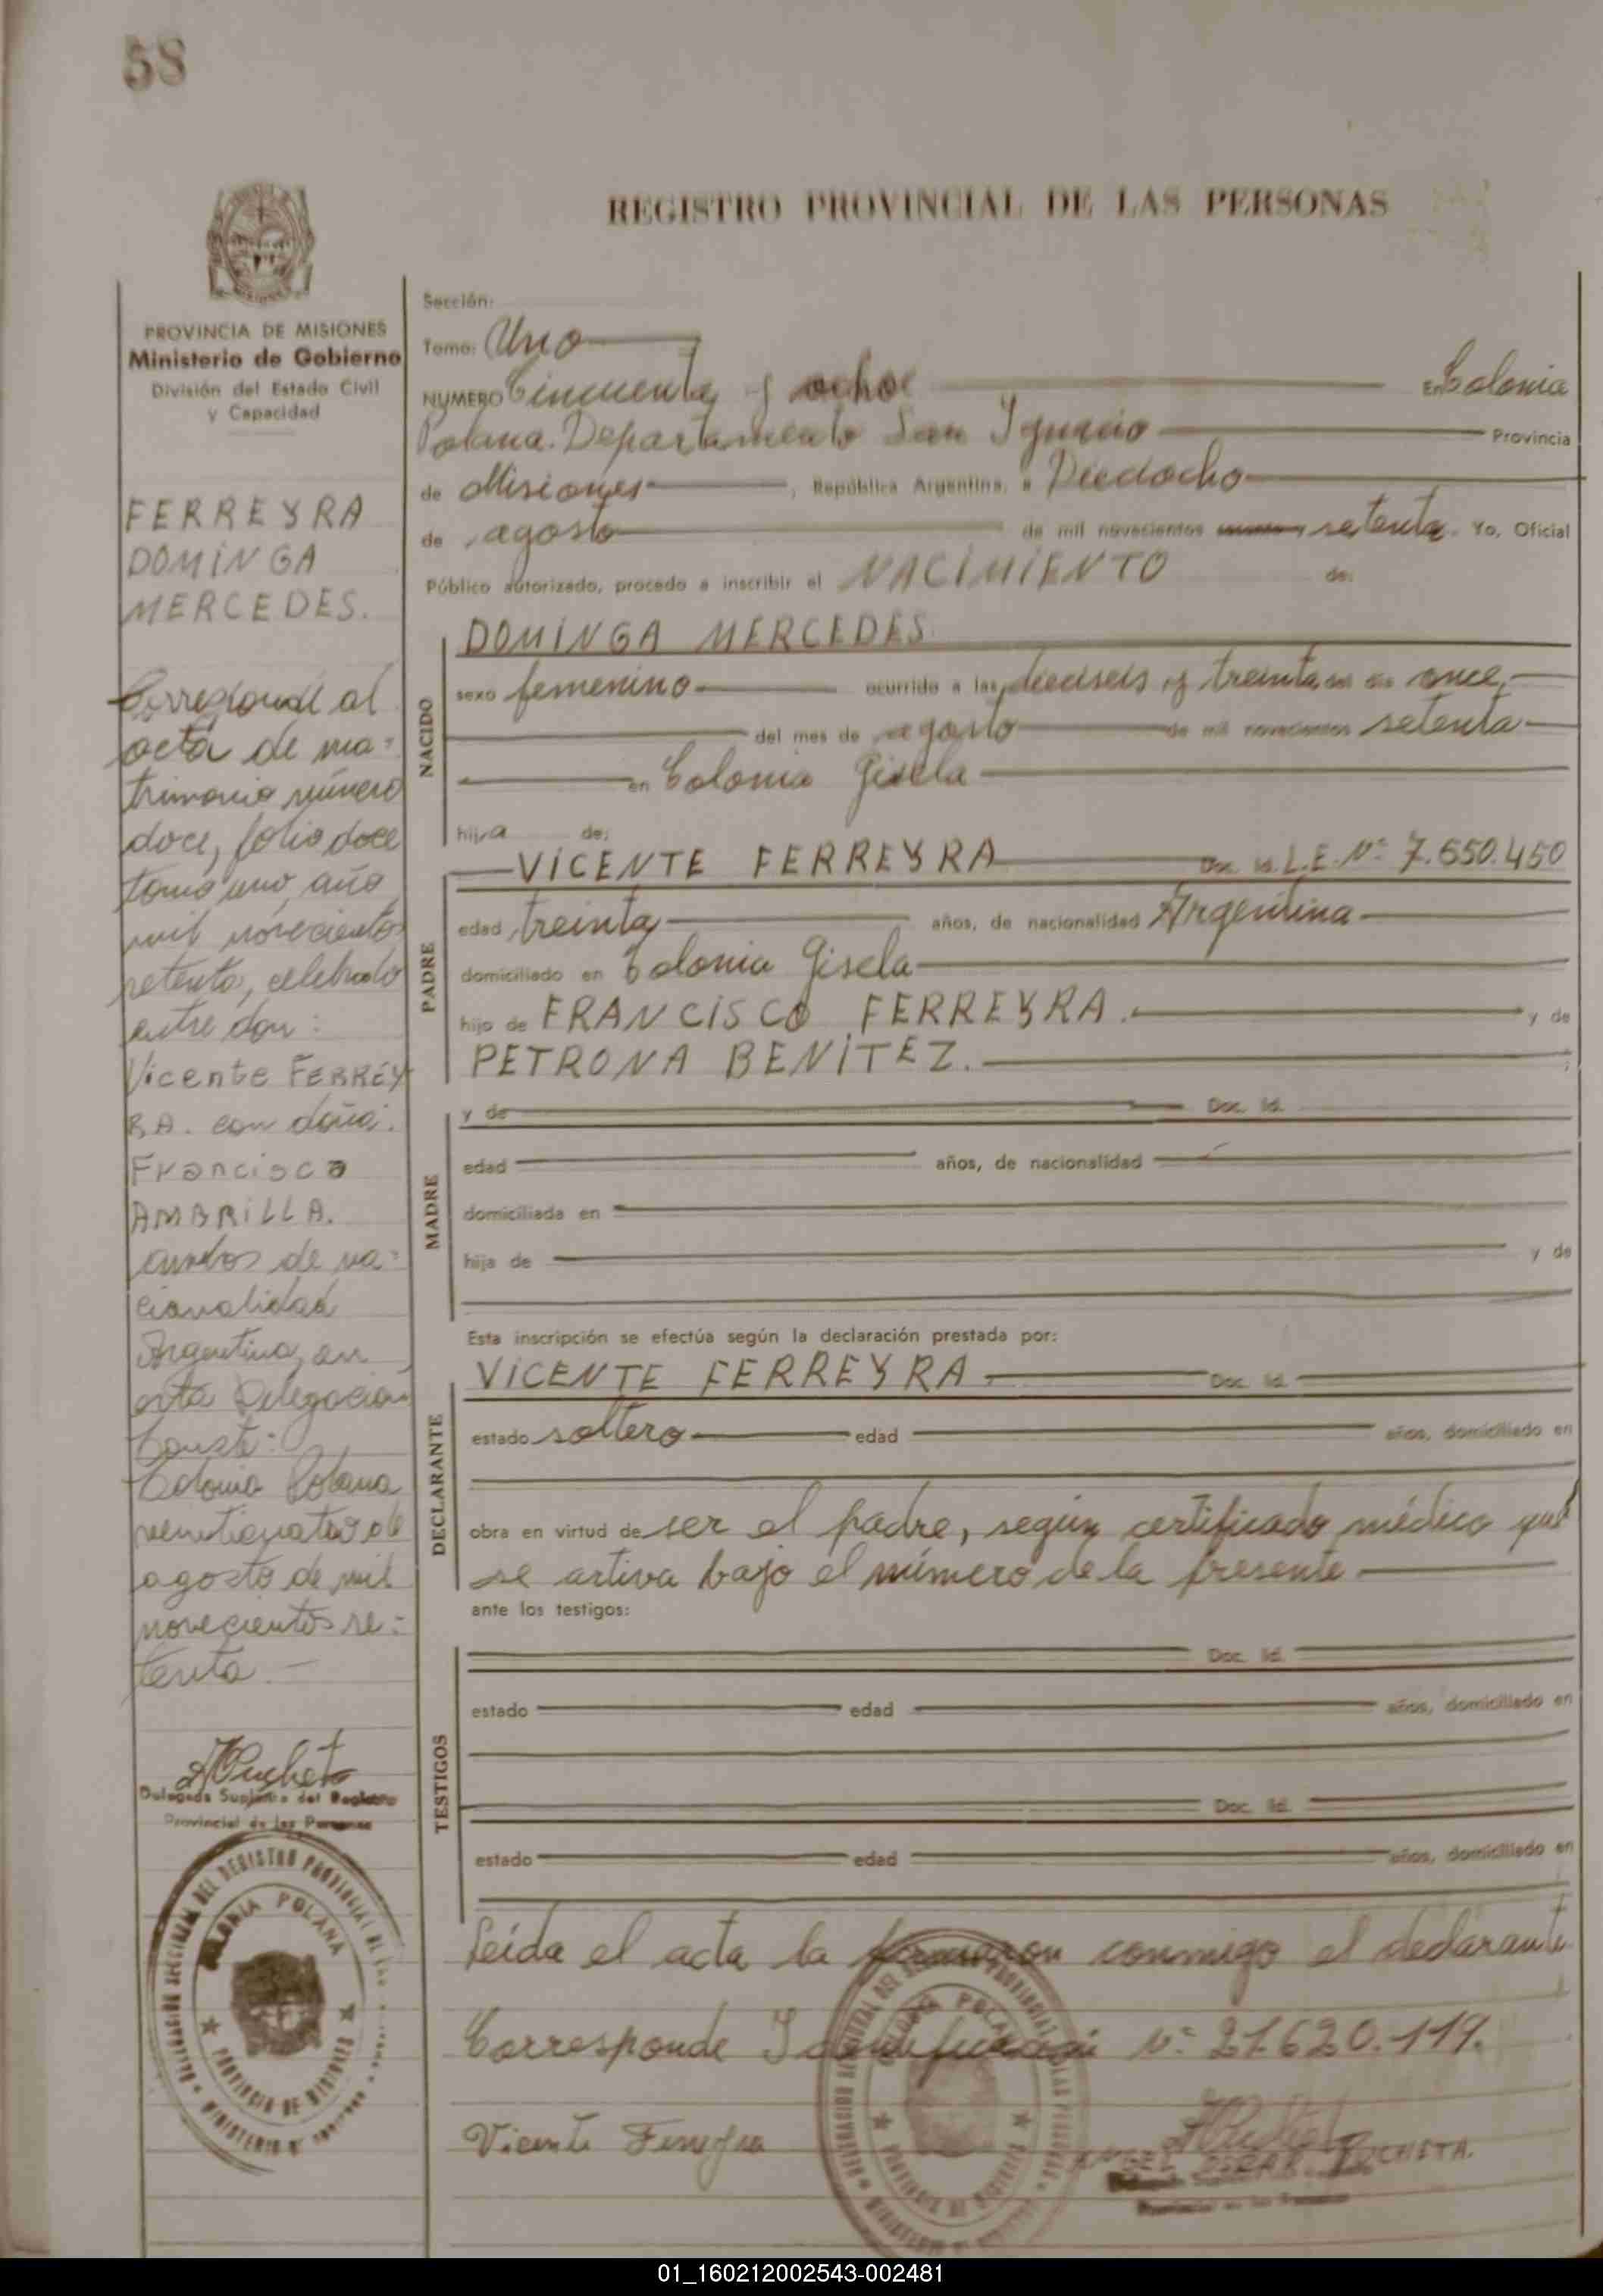 58
REGISTRO PROVINCIAL DE LAS PERSONAS
PROVINCIA DE MISIONES
Ministerio de Gobierno
División del Estado Civil
y Capacidad
FERREYRA
DOMINGA
MERCEDES.
Corresponde al
acta de ma=
trimonio número
doce, folio doce
tomo uno, año
mil novecientos
setenta, celebrado
entre don:
Vicente FERREY
RA. con doña:
Francisca
AMBRILLA.
ambos de na=
cionalidad
Argentina, en
esta Delegación
Conste:
Colonia Polana
veinticuatro de
agosto de mil
novecientos se=
tenta.—
Delegado Suplente del Registro
Provincial de las Personas
COLONIA POLANA
PROVINCIA DE MISIONES
Sección:
Tomo: Uno
NUMERO Cincuenta y ocho En Colonia
Polana. Departamento San Ignacio Provincia
de Misiones, República Argentina, a Dieciocho
de agosto de mil novecientos setenta. Yo, Oficial
Público autorizado, procedo a inscribir el NACIMIENTO de:
NACIDO
DOMINGA MERCEDES
sexo femenino ocurrido a las dieciseis y treinta del día once,
del mes de agosto de mil novecientos setenta
en Colonia Gisela
hija de:
PADRE
VICENTE FERREYRA Doc. Id. L.E. Nº 7.650.450
edad treinta años, de nacionalidad Argentina
domiciliado en Colonia Gisela
hijo de FRANCISCO FERREYRA. y de
PETRONA BENITEZ.
MADRE
y de Doc. Id.
edad años, de nacionalidad
domiciliada en
hija de y de
Esta inscripción se efectúa según la declaración prestada por:
DECLARANTE
VICENTE FERREYRA Doc. Id.
estado soltero edad años, domiciliado en
obra en virtud de ser el padre, según certificado médico que
se artiva bajo el número de la presente
ante los testigos:
TESTIGOS
Doc. Id.
estado edad años, domiciliado en
Doc. Id.
estado edad años, domiciliado en
Leída el acta la firmaron conmigo el declarante
Corresponde Identificación Nº 21.620.119.
Vicente Ferreyra
ANGEL OSCAR PUCHETA.
01_160212002543-002481